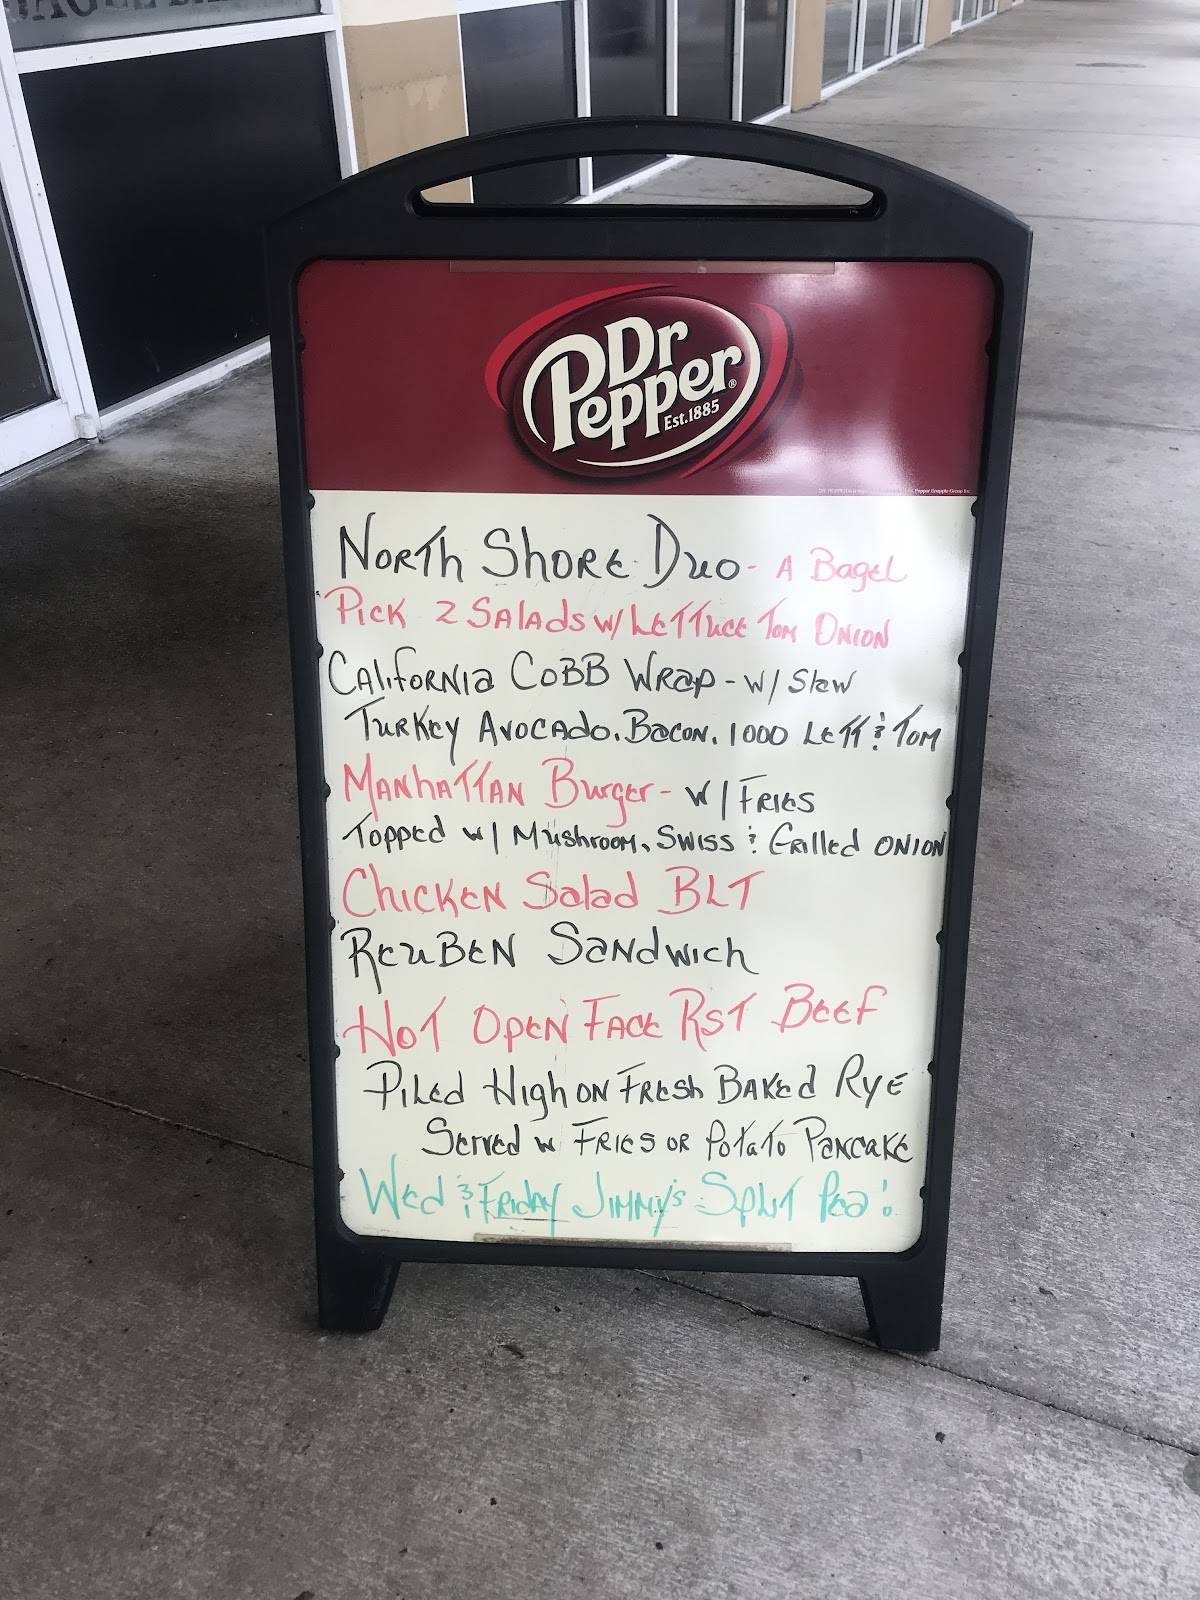 Dr
Pepper®
Est.1885
North Shore Duo - A Bagel
Pick 2 Salads w/ Lettuce Tom Onion
California Cobb Wrap - w/ Slaw
Turkey Avocado, Bacon, 1000 Lett & Tom
Manhattan Burger - w/ Fries
Topped w/ Mushroom, Swiss & Grilled Onion
Chicken Salad BLT
Reuben Sandwich
Hot Open Face Rst Beef
Piled High on Fresh Baked Rye
Served w Fries or Potato Pancake
Wed & Friday Jimmy's Split Pea!